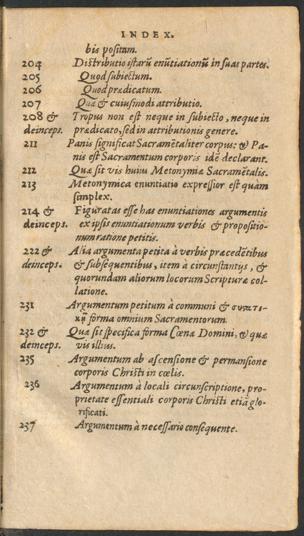 INDEX.
bis positam.
204 Distributio istarũ enũtiationũ in suas partes.
205 Quod subiectum.
206 Quod prædicatum.
207 Quæ & cuiusmodi attributio.
208 & Tropus non est neque in subiecto, neque in
deinceps. prædicato, sed in attributionis genere.
211 Panis significat Sacramẽtaliter corpus: & Pa-
nis est Sacramentum corporis idẽ declarant.
212 Quæ sit vis huius Metonymiæ Sacramẽtalis.
213 Metonymica enuntiatio expressior est quam
simplex.
214 & Figuratas esse has enuntiationes argumentis
deinceps. ex ipsis enuntiationum verbis & propositio-
num ratione petitis.
222 & Alia argumenta petita à verbis præcedẽtibus
deinceps. & subsequentibus, item à circunstantijs, &
quorundam aliorum locorum Scripturæ col-
latione.
231 Argumentum petitum à communi &
forma omnium Sacramentorum
232 & Quæ sit specifica forma Cœnæ Domini, & quæ
deinceps. vis illius.
235 Argumentum ab ascensione & permansione
corporis Christi in cœlis.
236 Argumentum à locali circunscriptione, pro-
prietate essentiali corporis Christi etiã glo-
rificati.
237 Argumentum à necessario consequente.